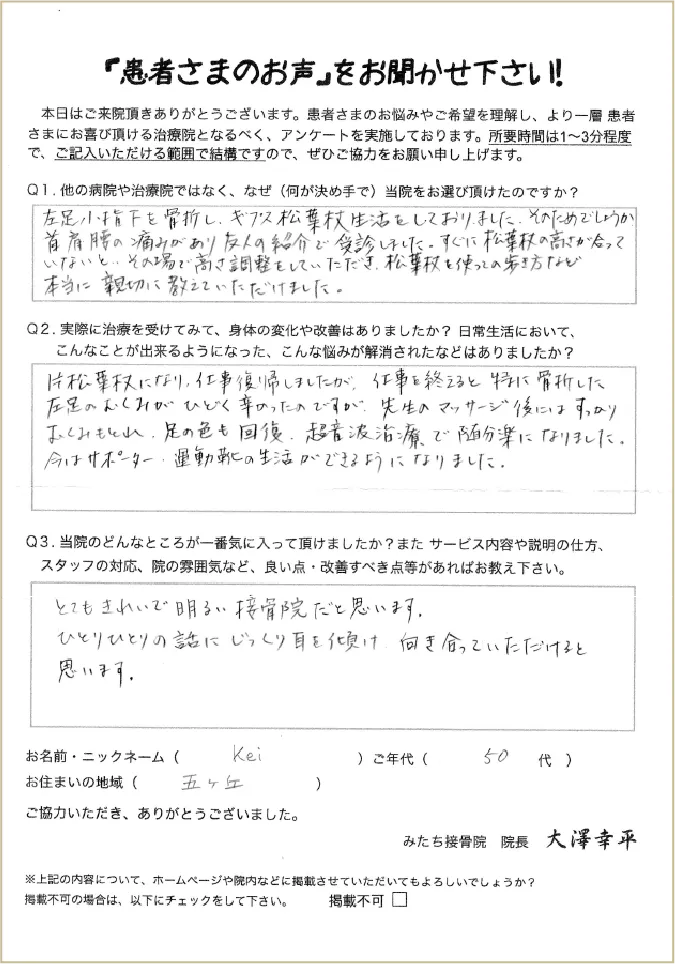 「患者さまのお声」をお聞かせ下さい!
本日はご来院頂きありがとうございます。患者さまのお悩みやご希望を理解し、より一層 患者
さまにお喜び頂ける治療院となるべく、アンケートを実施しております。所要時間は1〜3分程度
で、ご記入いただける範囲で結構ですので、ぜひご協力をお願い申し上げます。
Q1. 他の病院や治療院ではなく、なぜ(何が決め手で)当院をお選び頂けたのですか?
左足小指下を骨折し、ギプス松葉杖生活をしておりました。そのためでしょうか
首肩腰の痛みがあり友人の紹介で受診しました。すぐに松葉杖の高さが合って
いないと、その場で高さ調整をしていただき、松葉杖を使っての歩き方など
本当に親切に教えていただけました。
Q2. 実際に治療を受けてみて、身体の変化や改善はありましたか? 日常生活において、
こんなことが出来るようになった、こんな悩みが解消されたなどはありましたか?
片松葉杖になり、仕事復帰しましたが、仕事を終えると特に骨折した
左足のむくみがひどく辛かったのですが、先生のマッサージ後にはすっかり
むくみもとれ、足の色も回復、超音波治療で随分楽になりました。
今はサポーター、運動靴の生活ができるようになりました。
Q3. 当院のどんなところが一番気に入って頂けましたか? また サービス内容や説明の仕方、
スタッフの対応、院の雰囲気など、良い点・改善すべき点等があればお教え下さい。
とてもきれいで明るい接骨院だと思います。
ひとりひとりの話にじっくり耳を傾け、向き合っていただけると
思います。
お名前・ニックネーム( Kei )ご年代( 50 代 )
お住まいの地域( 五ヶ丘 )
ご協力いただき、ありがとうございました。
みたち接骨院 院長 大澤幸平
※上記の内容について、ホームページや院内などに掲載させていただいてもよろしいでしょうか?
掲載不可の場合は、以下にチェックをして下さい。 掲載不可 □